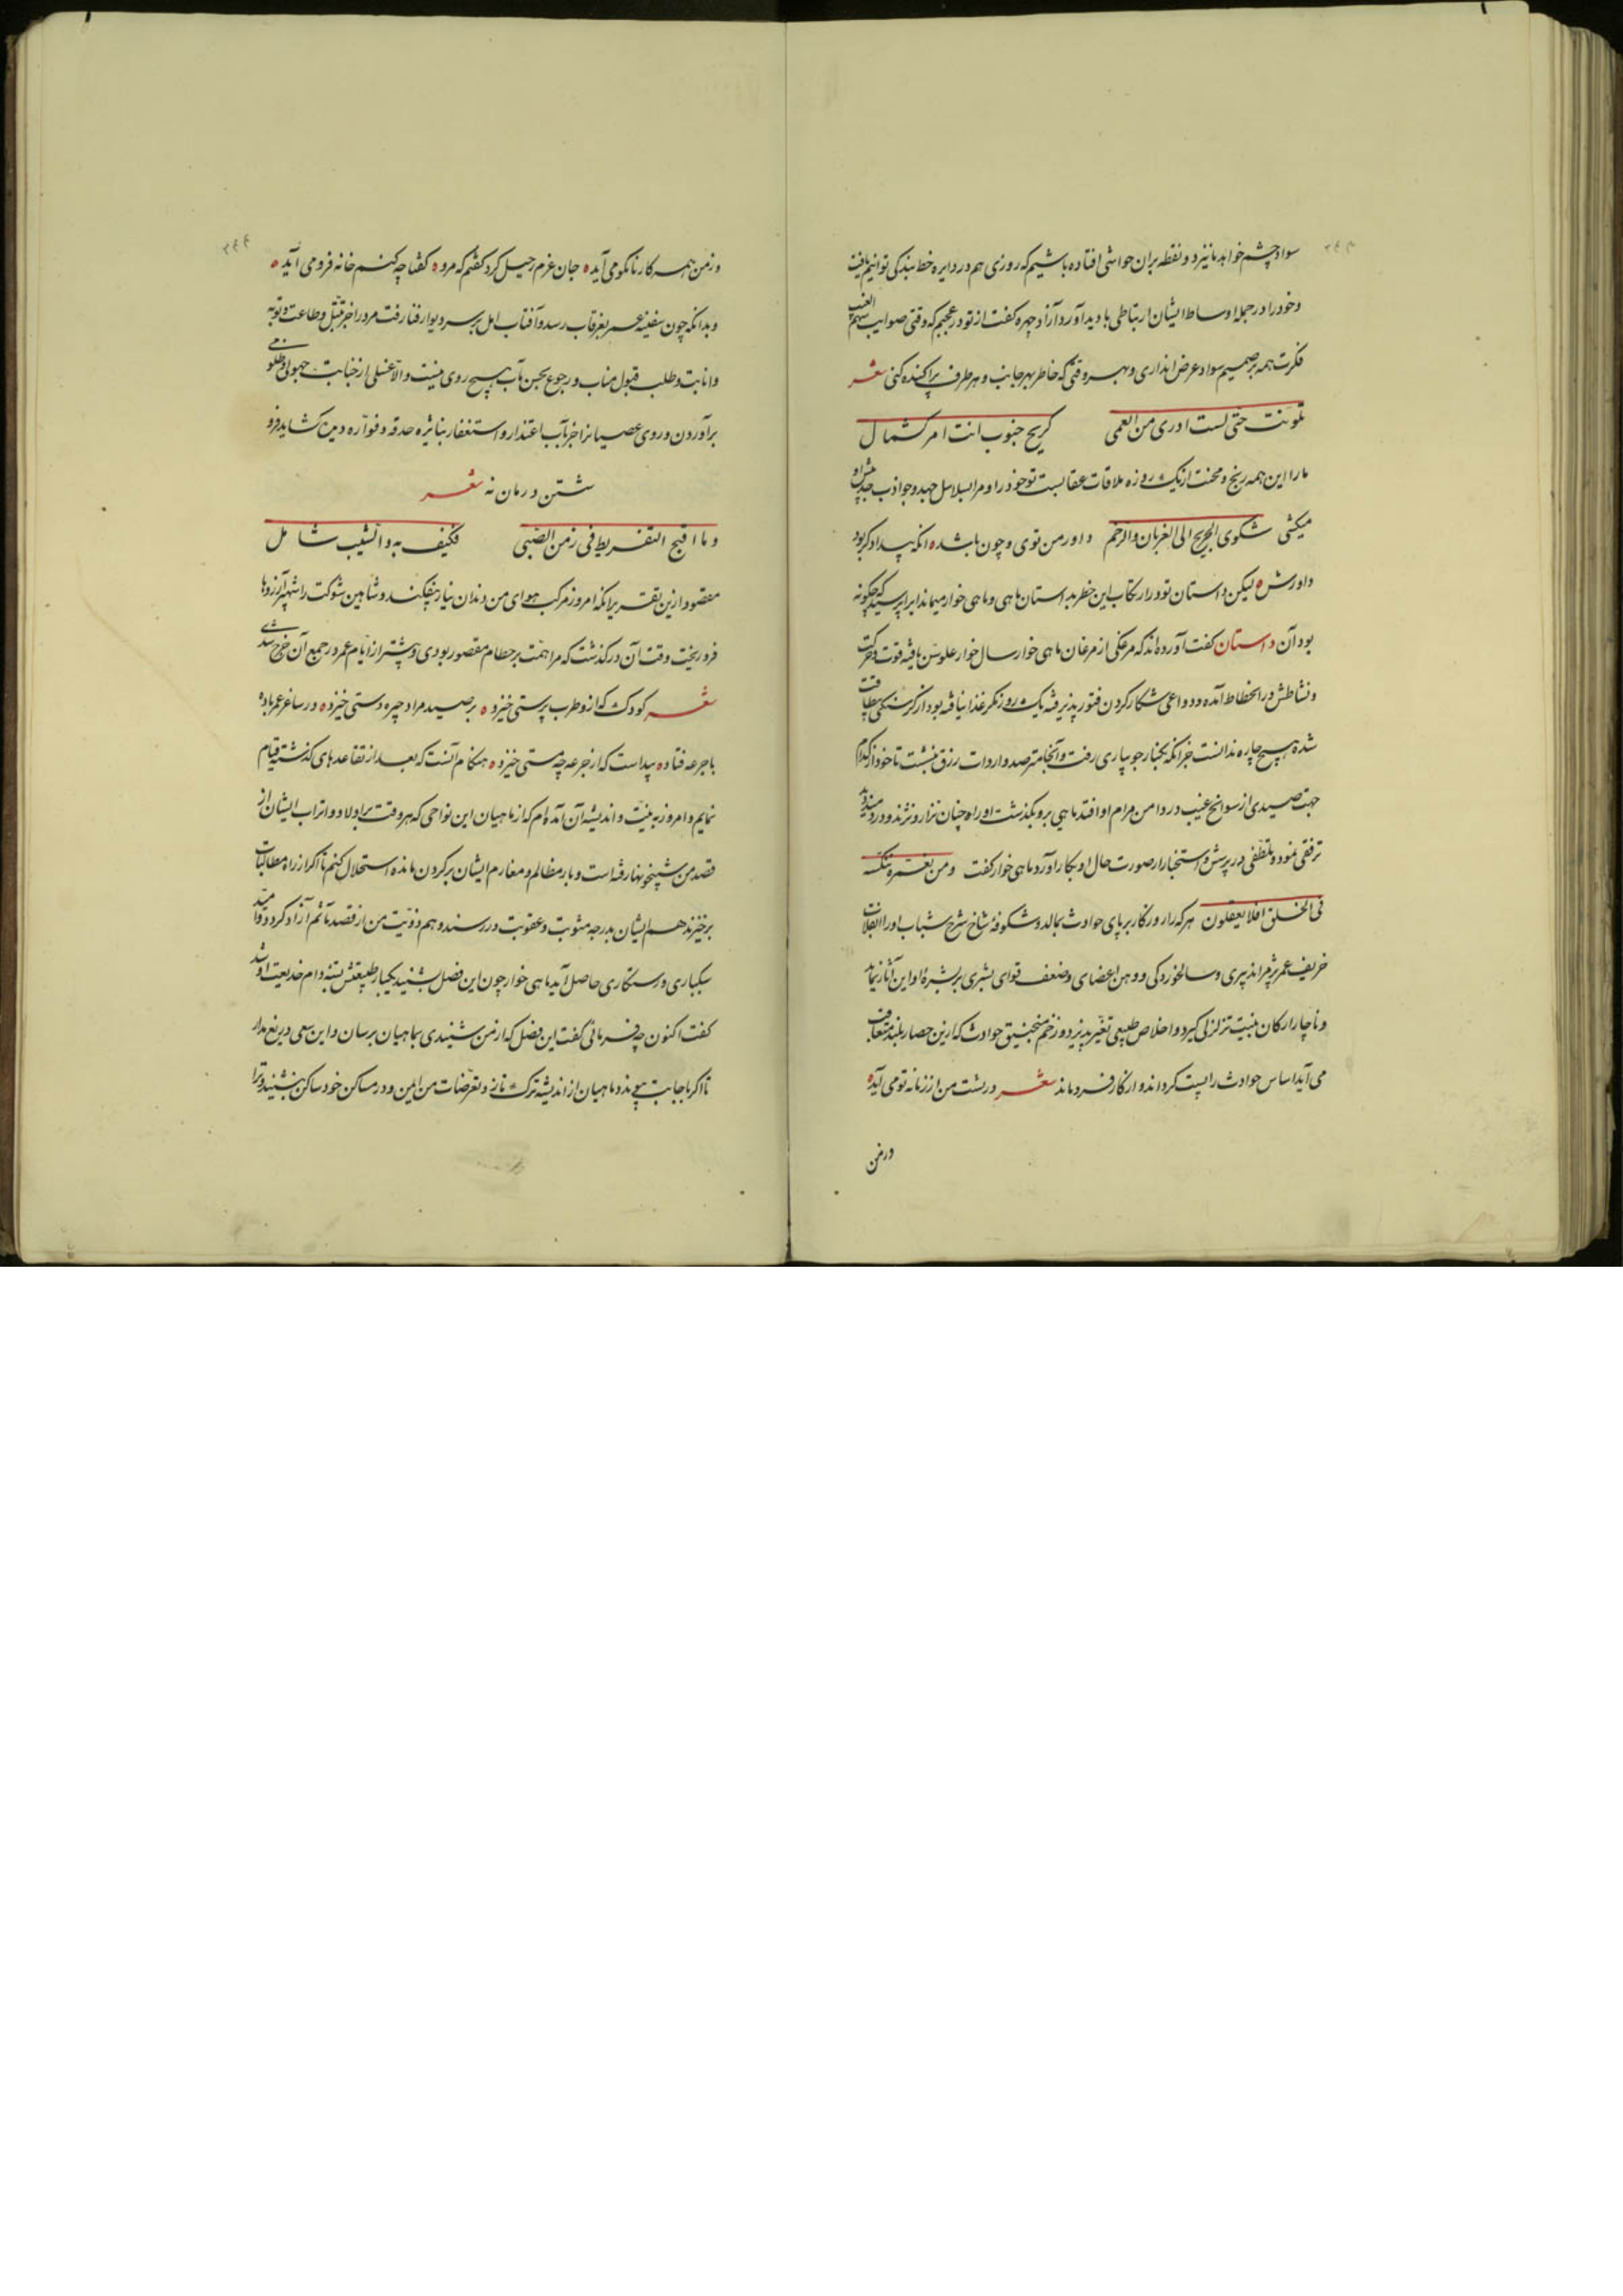 سواد چشم خواهد ما نیز دو نقطه بران حواشی افتاده باشیم که روزی هم در دایره خط بندکی توانیم یافت
وخود را در جمله اوساط ایشان ارتباطی بادید آورد آزاد چهره کفت از تو در عجبم که وقتی صوایب سهم الغیب
فکرت همه بر صمیم سواد عرض اندازی و بهر وقتی که خاطر بهر جانب و هر طرف پراکنده کنی شعر
تلونت حتی لست ادری من العمی کریح جنوب انت ام کشمال
ما را این همه رنج و محنت از یک روزه ملاقات عقابست تو خود را و مرا بسلاسل جهد و جواذب جد پیش او
میکشی شکوی الجریح الی الغربان والرخم داور من توی و چون باشد ه انکه بیدادکر بود
داورش ه لیکن داستان تو در ارتکاب این خطر بداستان ماهی و ماهی خوار میماند ایرا پرسید که چکونه
بود آن داستان کفت آورده اند که مرغکی از مرغان ماهی خوار سال خوار علو سن یافته قوت و حرکت
و نشاطش در انحطاط آمده و دواعی شکار کردن فتور پذیرفته یک روز مکر غذا نیافته بود از کرسنکی بیطاقت
شده هیچ چاره ندانست جز انکه بکنار جویباری رفت و آنجا مترصد واردات رزق بنشست تا خود از کدام
جهت صیدی از سوانح غیب در دامن مرام او افتد ماهیی برو بکذشت او را چنان نزار و نژند و دردمند دید
ترفقی نمود و تلطفی در پرسش و استخبار از صورت حال او بکار آورد ماهی خوار کفت ومن نعمره ننکسه
فی الخلق افلا یعقلون هر که را روزکار بر پای حوادث بمالد و شکوفه شاخ شرخ شباب او را انقلاب
خریف عمر بژمراند پیری و سالخوردکی و وهن اعضای و ضعف قوای بشری بر بشره او این آثار نماید
و ناچار ارکان بنیت تزلزلی کیرد و اخلاص طبیعی تغیر پذیرد و زخم منجنیق حوادث که ازین حصار بلند متعاقب
می آید اساس حوادث را پست کرداند و از کار فرو ماند شعر در پشت من از زمانه تو می آید ه
در من
وز من همه کار نانکو می آید ه جان عزم رحیل کرد کفتم که مرو ه کفتا چه کنم خانه فرو می آید ه
وبدانکه چون سفینه عمر بغرقاب رسد و آفتاب امل بر سر دیوار فنا رفت مرد را جز تبتل و طاعت و توبه
وانابت و طلب قبول مناب و رجوع بحسن مآب هیچ روی نیست و الا غسلی از جنابت جهولی و ظلومی
برآوردن و روی عصیانرا جز بآب اعتذار و استغفار بنایژه حدقه و فواره دمع کشاید فرو
شستن درمان نه شعر
وما اقبح التفریط فی زمن الصبی فکیف به والشیب شامل
مقصود ازین تقریر انکه امروز مرکب هوای من دندان نیاز بیفکند و شاهین شوکت را شهپر آرزوها
فرو ریخت وقت آن درکذشت که مرا همت بر حطام مقصور بودی و بیشتر از ایام عمر در جمع آن خرج شدی
شعر کودک که ازو طرب پرستی خیزد ه بر صید مراد چیره دستی خیزد ه در ساغر عمر باده
با جرعه فتاده پیداست که از جرعه چه مستی خیزد ه هنکام آنست که بعد از تقاعدهای کذشته قیام
نمایم و امروز به نیت و اندیشه آن آمده ام که از ماهیان این نواحی که هر وقت بر اولاد و اتراب ایشان از
قصد من شبیخونها رفته است و بار مظالم و مغارم ایشان بر کردن مانده استحلال کنم تا اکر از راه مطالبات
برخیزند هم ایشان بدرجه مثوبت و عقوبت در رسند و هم ذویت من از قصد تاثم آزاد کردد و امید
سبکباری و رستکاری حاصل آید ماهی خوار چون این فصل بشنید یکبار طبیعتش بسته دام خدیعت او شد
کفت اکنون چه فرمائی کفت این فصل که از من شنیدی بماهیان برسان و این سعی دریغ مدار
تا اکر باجابت پیوندد ماهیان از اندیشه ترک تاز و تعرضات من ایمن و در مساکن خود ساکن بنشینند و ترا